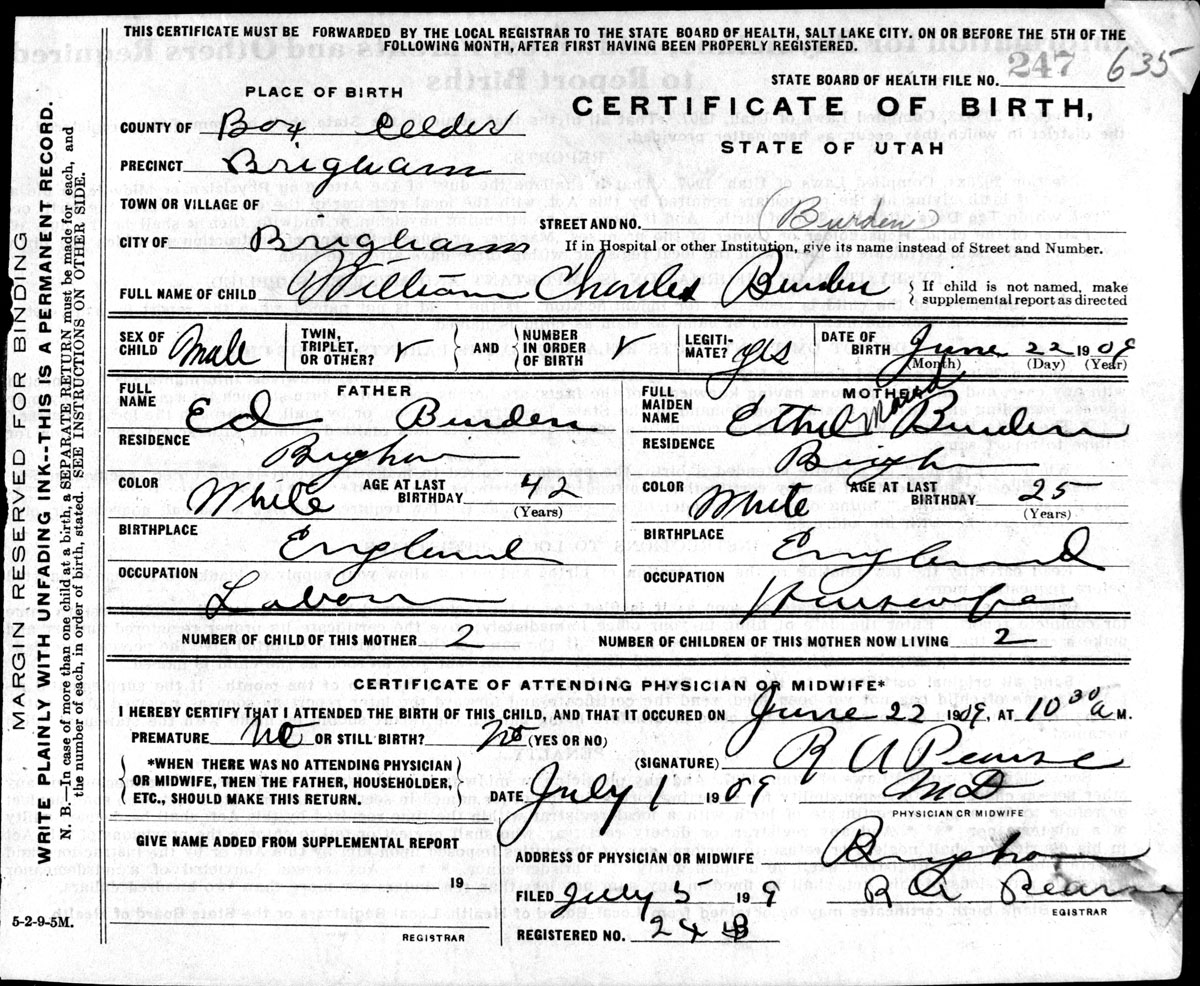 THIS CERTIFICATE MUST BE FORWARDED BY THE LOCAL REGISTRAR TO THE STATE BOARD OF HEALTH, SALT LAKE CITY. ON OR BEFORE THE 5TH OF THE
FOLLOWING MONTH, AFTER FIRST HAVING BEEN PROPERLY REGISTERED.
STATE BOARD OF HEALTH FILE NO. 247 635
PLACE OF BIRTH
CERTIFICATE OF BIRTH,
STATE OF UTAH
COUNTY OF Box Elder
PRECINCT Brigham
TOWN OR VILLAGE OF
STREET AND NO. Burden
CITY OF Brigham
If in Hospital or other Institution, give its name instead of Street and Number.
FULL NAME OF CHILD William Charles Burden { If child is not named, make
supplemental report as directed
SEX OF CHILD Male TWIN, TRIPLET, OR OTHER? - } AND { NUMBER IN ORDER OF BIRTH LEGITI-MATE? yes DATE OF BIRTH June 22 1909
(Month) (Day) (Year)
FATHER
FULL NAME Ed Burden
RESIDENCE Brigham
COLOR White AGE AT LAST BIRTHDAY 42
(Years)
BIRTHPLACE England
OCCUPATION Labor
MOTHER
FULL MAIDEN NAME Ethel Burden
RESIDENCE Brigham
COLOR White AGE AT LAST BIRTHDAY 25
(Years)
BIRTHPLACE England
OCCUPATION Housewife
NUMBER OF CHILD OF THIS MOTHER 2 NUMBER OF CHILDREN OF THIS MOTHER NOW LIVING 2
CERTIFICATE OF ATTENDING PHYSICIAN OR MIDWIFE*
I HEREBY CERTIFY THAT I ATTENDED THE BIRTH OF THIS CHILD, AND THAT IT OCCURED ON June 22 1909, AT 10 30 a M.
PREMATURE No OR STILL BIRTH? No (YES OR NO)
*WHEN THERE WAS NO ATTENDING PHYSICIAN
OR MIDWIFE, THEN THE FATHER, HOUSEHOLDER,
ETC., SHOULD MAKE THIS RETURN.
(SIGNATURE) R A Pearse
MD
DATE July 1 1909
PHYSICIAN OR MIDWIFE
GIVE NAME ADDED FROM SUPPLEMENTAL REPORT
19
REGISTRAR
ADDRESS OF PHYSICIAN OR MIDWIFE Brigham
FILED July 5 1909 R A Pearse
EGISTRAR
REGISTERED NO.
5-2-9-5M.
MARGIN RESERVED FOR BINDING
WRITE PLAINLY WITH UNFADING INK--THIS IS A PERMANENT RECORD.
N. B.—In case of more than one child at a birth, a SEPARATE RETURN must be made for each, and
the number of each, in order of birth, stated. SEE INSTRUCTIONS ON OTHER SIDE.